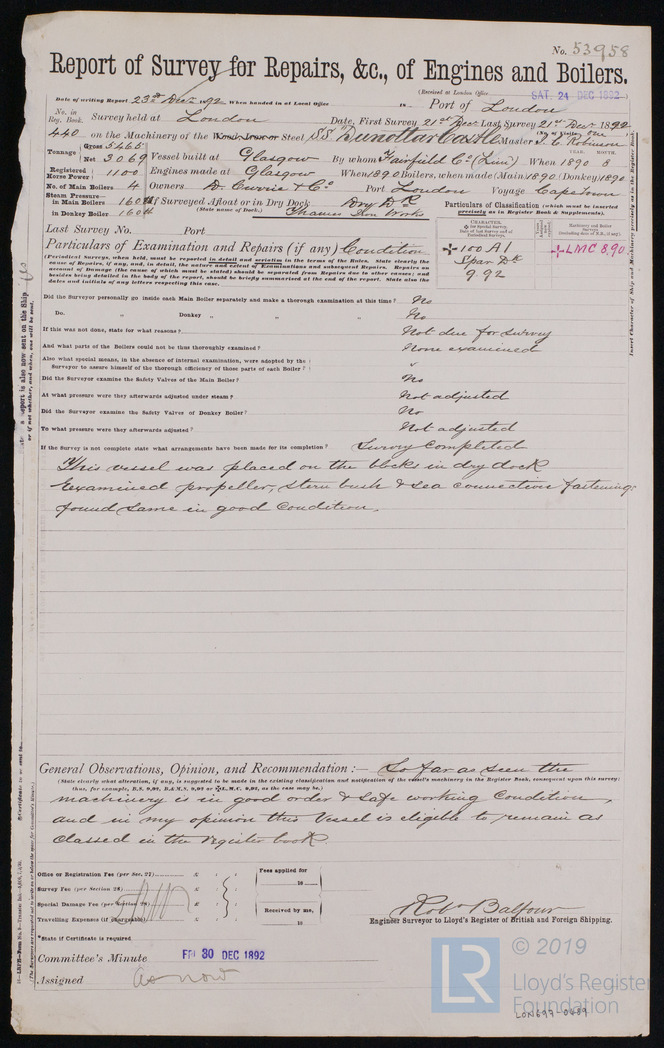 No. 53958
Report of Survey for Repairs, &c., of Engines and Boilers.
(Received at London Office SAT. 24 DEC 1892)
Date of writing Report 23rd Decr 1892 When handed in at Local Office 18 Port of London
No. in Reg. Book. 440 Survey held at London Date, First Survey 21st Decr Last Survey 21st Decr 1892
on the Machinery of the Wood, Iron or Steel SS "Dunottar Castle" Master J. C. Robinson
Tonnage Gross 5465 Net 3069 Vessel built at Glasgow By whom Fairfield Co (Lim) When 1890 8
YEAR. MONTH.
Registered Horse Power 1100 Engines made at Glasgow When 1890 Boilers, when made (Main) 1890 (Donkey) 1890
No. of Main Boilers 4 Owners D. Currie & Co Port London Voyage Cape Town
Steam Pressure in Main Boilers 160 lb If Surveyed Afloat or in Dry Dock Dry Dk
in Donkey Boiler 160 lb (State name of Dock.) Thames Iron Works
Particulars of Classification (which must be inserted precisely as in Register Book & Supplements).
CHARACTER.
Last Survey No. Port
100 A1
Spar Dk
9.92
LMC 8.90
Particulars of Examination and Repairs (if any) Condition
(Periodical Surveys, when held, must be reported in detail and seriatim in the terms of the Rules. State clearly the cause of Repairs, if any, and, in detail, the nature and extent of Examinations and subsequent Repairs. Repairs on account of Damage (the cause of which must be stated) should be separated from Repairs due to other causes; and besides being detailed in the body of the report, should be briefly summarised at the end of the report. State also the dates and initials of any letters respecting this case.
Did the Surveyor personally go inside each Main Boiler separately and make a thorough examination at this time? No
Do. " Donkey " " " No
If this was not done, state for what reasons? Not due for survey
And what parts of the Boilers could not be thus thoroughly examined? None examined
Also what special means, in the absence of internal examination, were adopted by the
Surveyor to assure himself of the thorough efficiency of those parts of each Boiler? "
Did the Surveyor examine the Safety Valves of the Main Boiler? No
At what pressure were they afterwards adjusted under steam? Not adjusted
Did the Surveyor examine the Safety Valves of Donkey Boiler? No
To what pressure were they afterwards adjusted? Not adjusted
If the Survey is not complete state what arrangements have been made for its completion? Survey Completed
This vessel was placed on the blocks in dry dock
Examined propeller, stern bush & sea connection fastenings
found same in good condition.
General Observations, Opinion, and Recommendation:— So far as seen the
(State clearly what alteration, if any, is suggested to be made in the existing classification and notification of the vessel's machinery in the Register Book, consequent upon this survey:
machinery is in good order & safe working condition,
and in my opinion this Vessel is eligible to remain as
classed in the register book.
Office or Registration Fee (per Sec. 27) £ : :
Survey Fee (per Section 28) £ : :
Special Damage Fee (per Section 28) £ : :
Travelling Expenses (if chargeable) £ : :
Fees applied for
18
Received by me,
18
Robt Balfour
Engineer Surveyor to Lloyd's Register of British and Foreign Shipping.
*State if Certificate is required
Committee's Minute FRI 30 DEC 1892
Assigned as now
LR
© 2019
Lloyd's Register
Foundation
LON697-0489
Insert Character of Ship and Machinery precisely as in the Register Book.